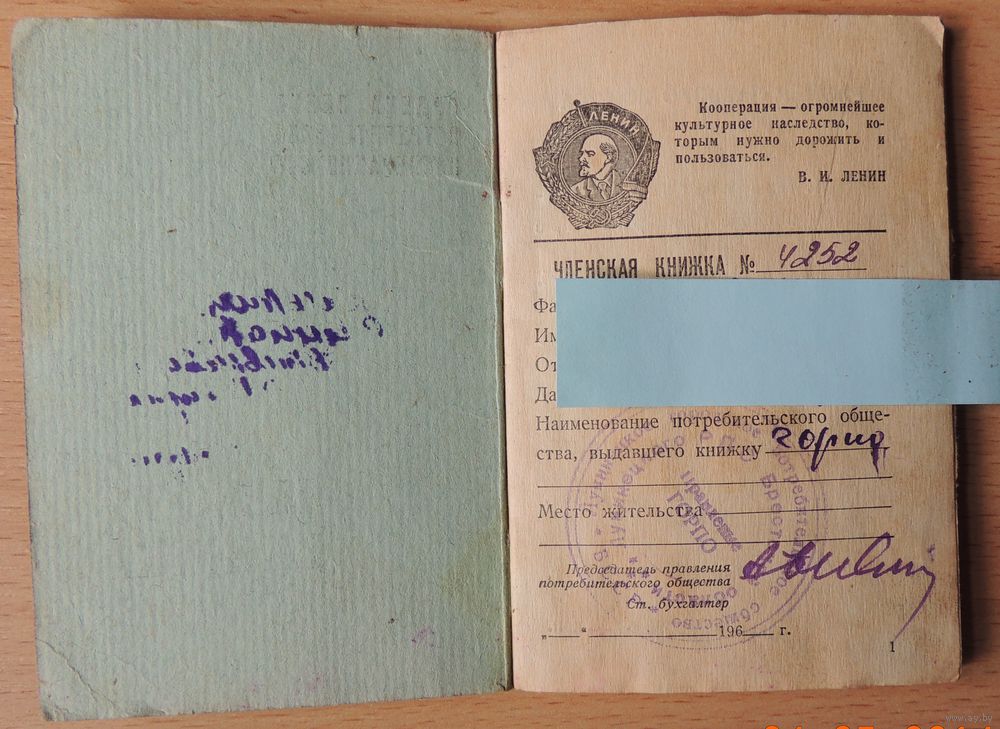 ЛЕНИН
Кооперация — огромнейшее
культурное наследство, ко-
торым нужно дорожить и
пользоваться.
В. И. ЛЕНИН
ЧЛЕНСКАЯ КНИЖКА № 4252
Фа
Им
От
Да
Наименование потребительского обще-
ства, выдавшего книжку горпо
Место жительства
Правление
ГОРПО
Председатель правления
потребительского общества
Ст. бухгалтер
„ “ 196 г.
1
www.ay.by